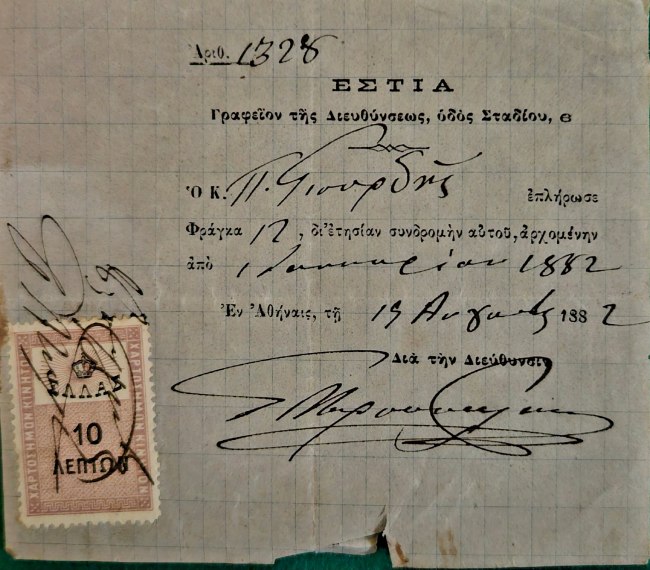 Ἀριθ. 1328
ΕΣΤΙΑ
Γραφεῖον τῆς Διευθύνσεως, ὁδὸς Σταδίου, 6
Ὁ Κ. Π. ἐπλήρωσε
Φράγκα 12, δι' ἐτησίαν συνδρομὴν αὐτοῦ, ἀρχομένην
ἀπὸ 1 Ιανουαρίου 1882
Ἐν Ἀθήναις, τῇ 19 1882
Διὰ τὴν Διεύθυνσιν
ΕΛΛΑΣ
10
ΛΕΠΤΩΝ
ΧΑΡΤΟΣΗΜΟΝ ΚΙΝΗΤΟΝ
ΧΑΡΤΟΣΗΜΟΝ ΚΙΝΗΤΟΝ